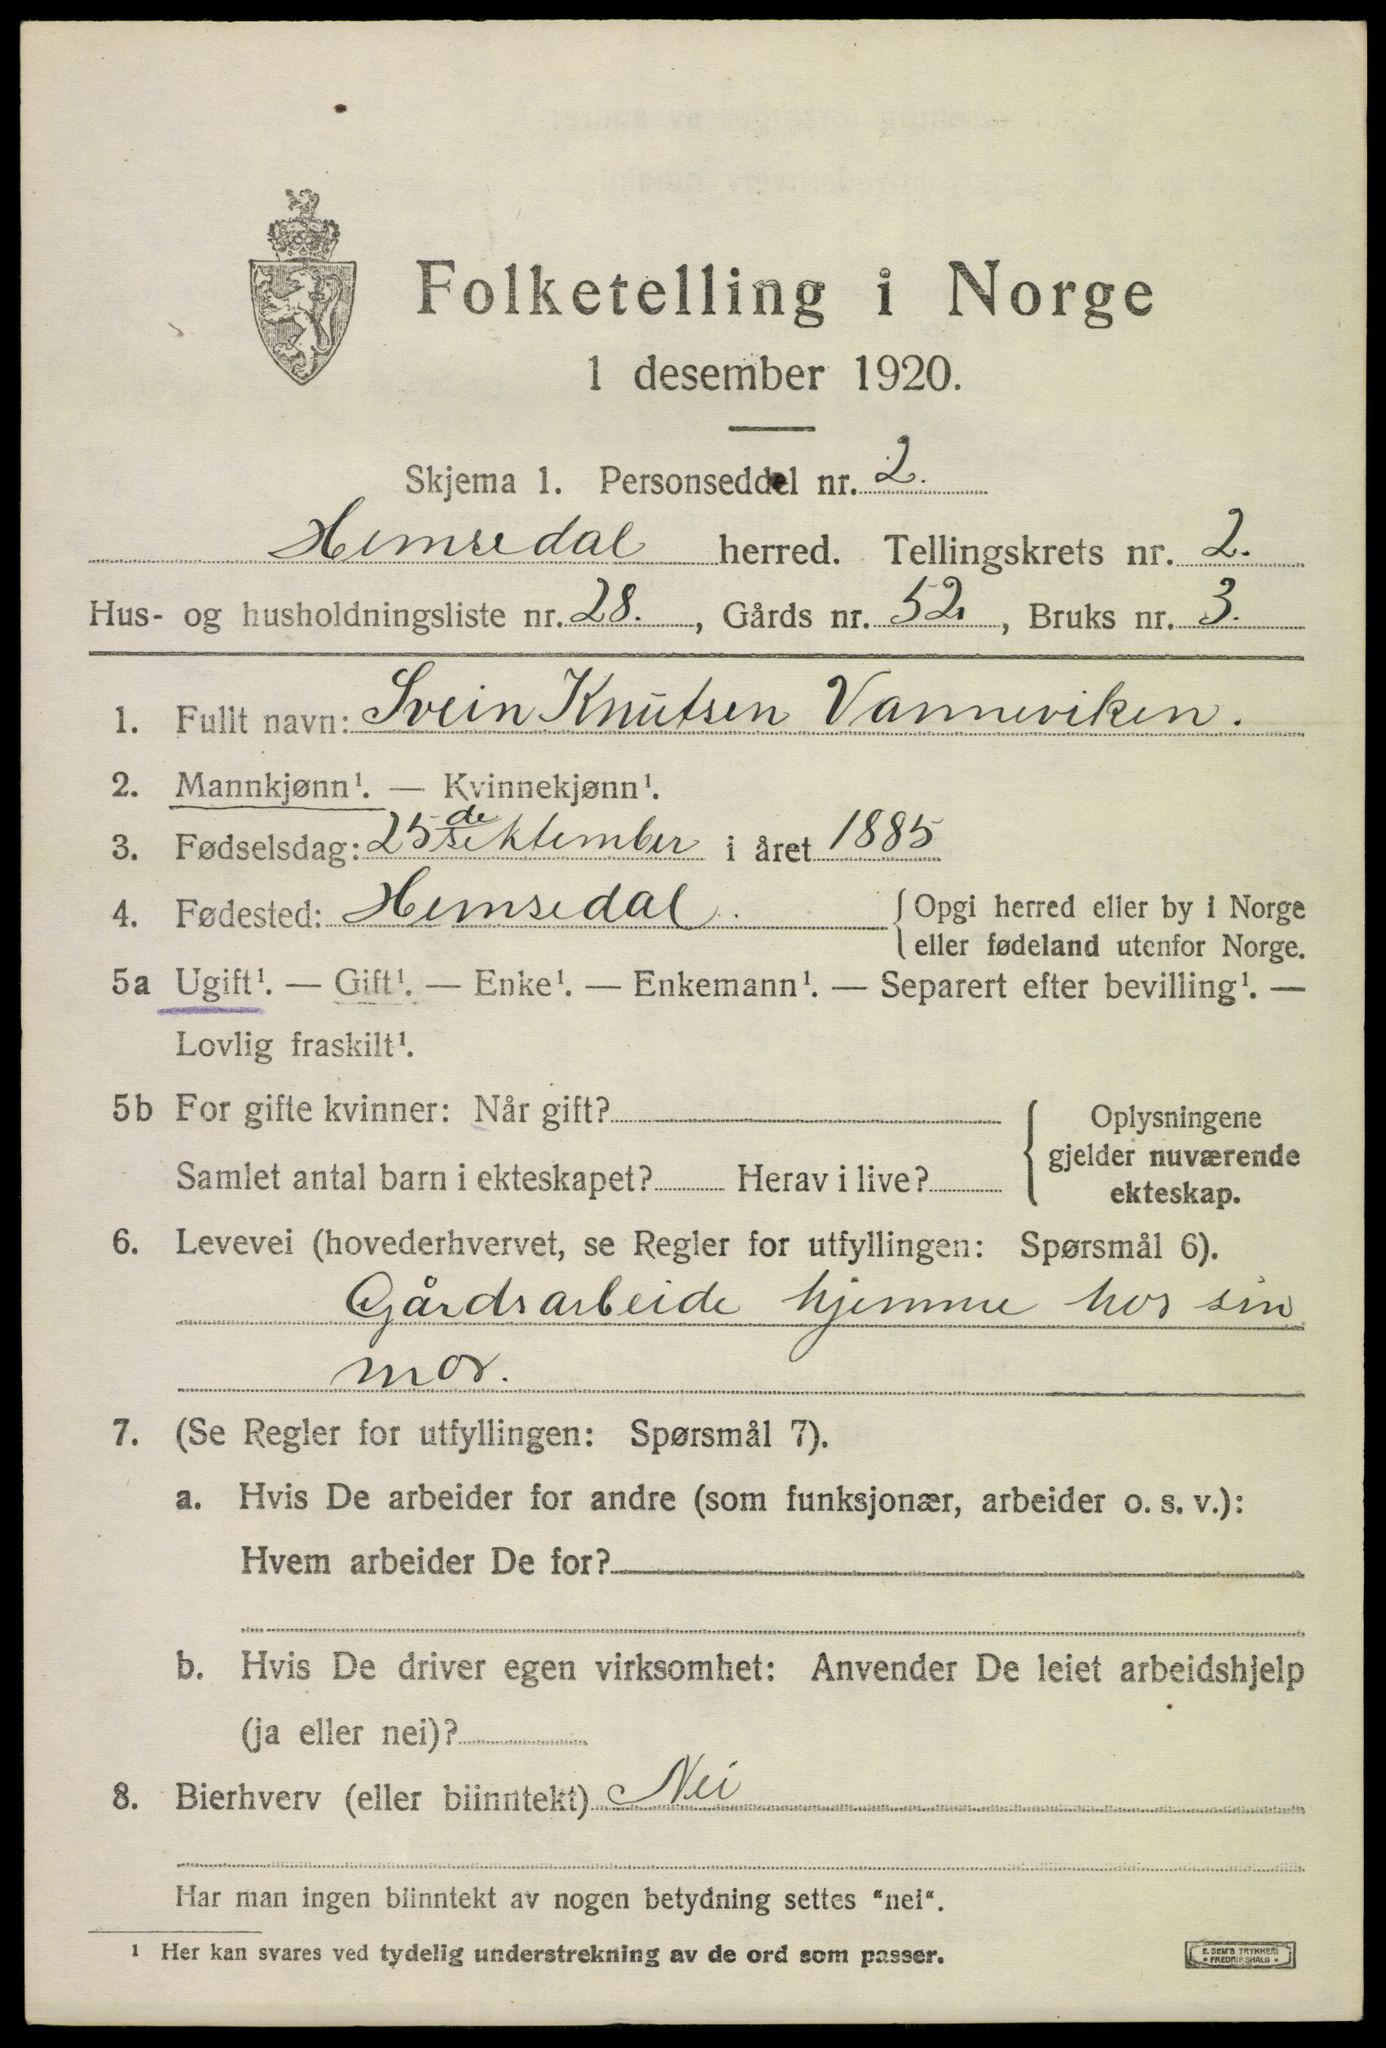 Folketelling i Norge
1 desember 1920.
Skjema 1. Personseddel nr. 2.
Hemsedal herred. Tellingskrets nr. 2.
Hus- og husholdningsliste nr. 28., Gårds nr. 52, Bruks nr. 3.
1. Fullt navn: Svein Knutsen Vanneviken.
2. Mannkjønn¹. — Kvinnekjønn¹.
3. Fødselsdag: 25de sektember i året 1885
4. Fødested: Hemsedal. { Opgi herred eller by i Norge
eller fødeland utenfor Norge.
5a Ugift¹. — Gift¹. — Enke¹. — Enkemann¹. — Separert efter bevilling¹. —
Lovlig fraskilt¹.
5b For gifte kvinner: Når gift?
Samlet antal barn i ekteskapet? Herav i live?
{ Oplysningene
gjelder nuværende
ekteskap.
6. Levevei (hovederhvervet, se Regler for utfyllingen: Spørsmål 6).
Gårdsarbeide hjemme hos sin
mor.
7. (Se Regler for utfyllingen: Spørsmål 7).
a. Hvis De arbeider for andre (som funksjonær, arbeider o. s. v.):
Hvem arbeider De for?
b. Hvis De driver egen virksomhet: Anvender De leiet arbeidshjelp
(ja eller nei)?
8. Bierhverv (eller biinntekt) Nei
Har man ingen biinntekt av nogen betydning settes "nei".
¹ Her kan svares ved tydelig understrekning av de ord som passer.
E. SEM'S TRYKKERI
• FREDRIKSHALD •